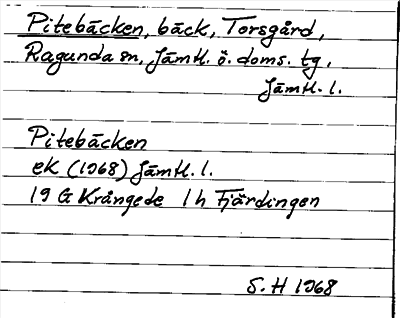 Pitebäcken, bäck, Torsgård,
Ragunda sn, Jämtl. ö. doms. tg,
Jämtl. l.
Pitebäcken
ek (1968) Jämtl. l.
19 G Krångede 1 h Fjärdingen
S. H 1968